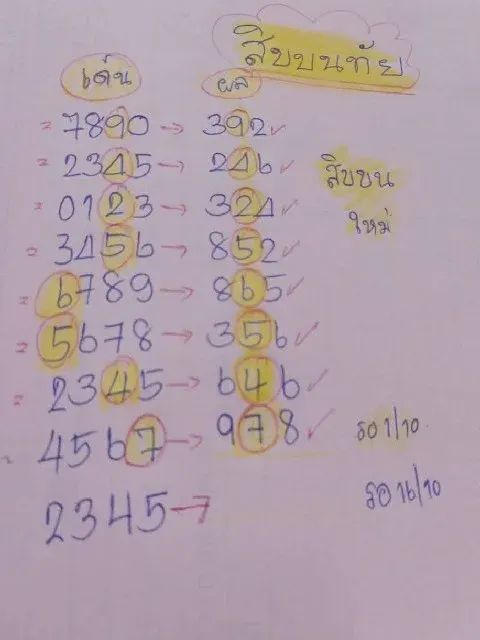 สิบบนทัย
เด่น ผล
= 7890 → 392 ✓
= 2345 → 246 ✓
สิบบน
= 0123 → 324 ✓
ใหม่
= 3456 → 852 ✓
= 6789 → 865 ✓
= 5678 → 356 ✓
= 2345 → 646 ✓
4567 → 978 ✓ รอ 1/10
รอ 16/10
2345 →